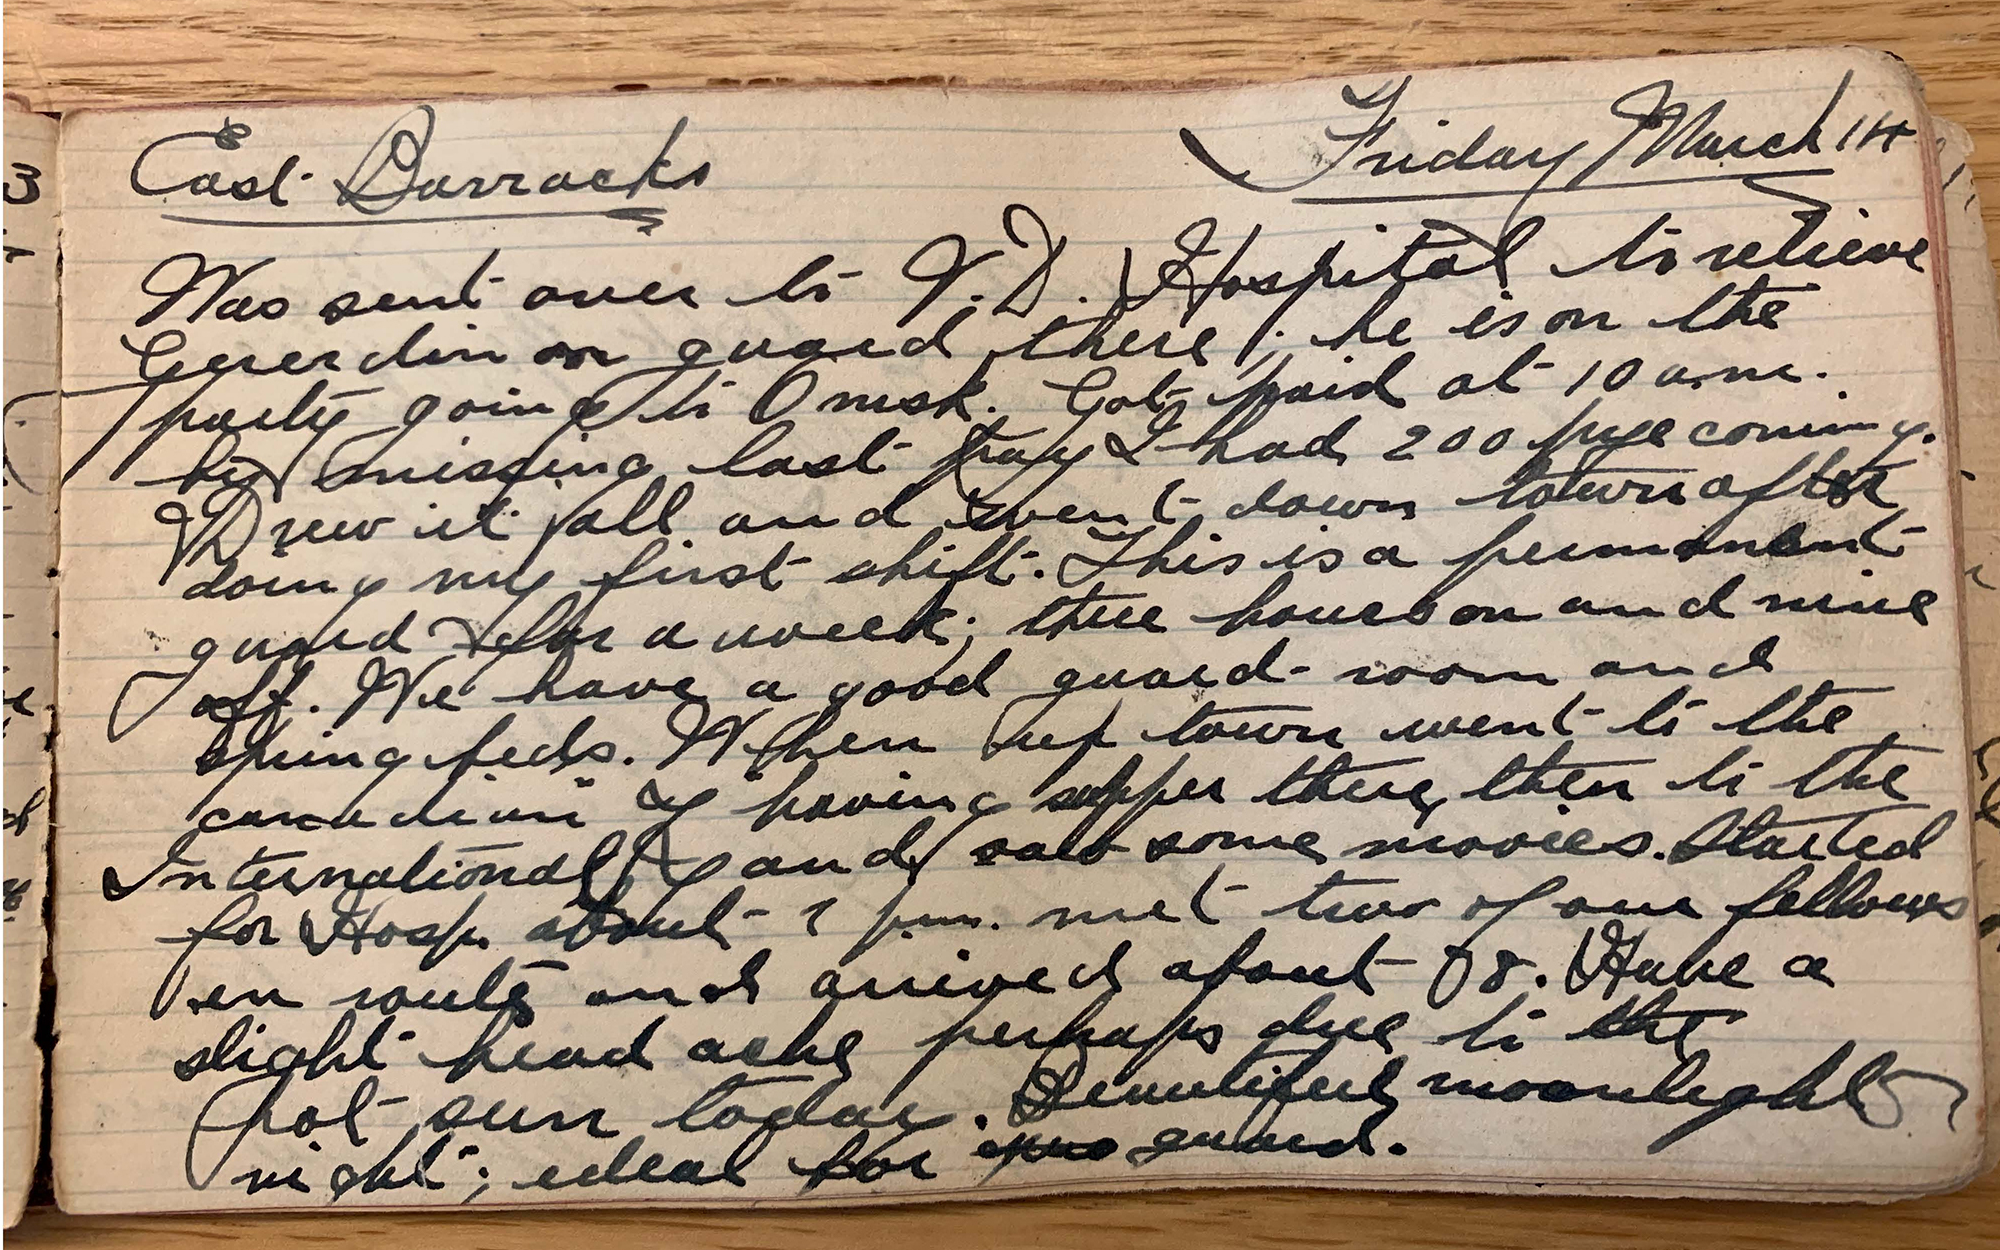 East Barracks
Friday March 14
Was sent over to V.D. Hospital to relieve
on guard there; he is on the
party going to Omsk. Got paid at 10 a.m.
by missing last pay I had 200 coming.
Drew it all and went down town after
doing my first shift. This is a permanent
guard for a week; three hours on and nine
off. We have a good guard-room and
spring beds. When up town went to the
canadian "Y" having supper there, then to the
International Y and saw some movies. Started
for Hosp. about 7 p.m. met two of our fellows
en route and arrived about 8. Have a
slight head ache perhaps due to the
hot sun today. Beautiful moonlight
night; ideal for guard.